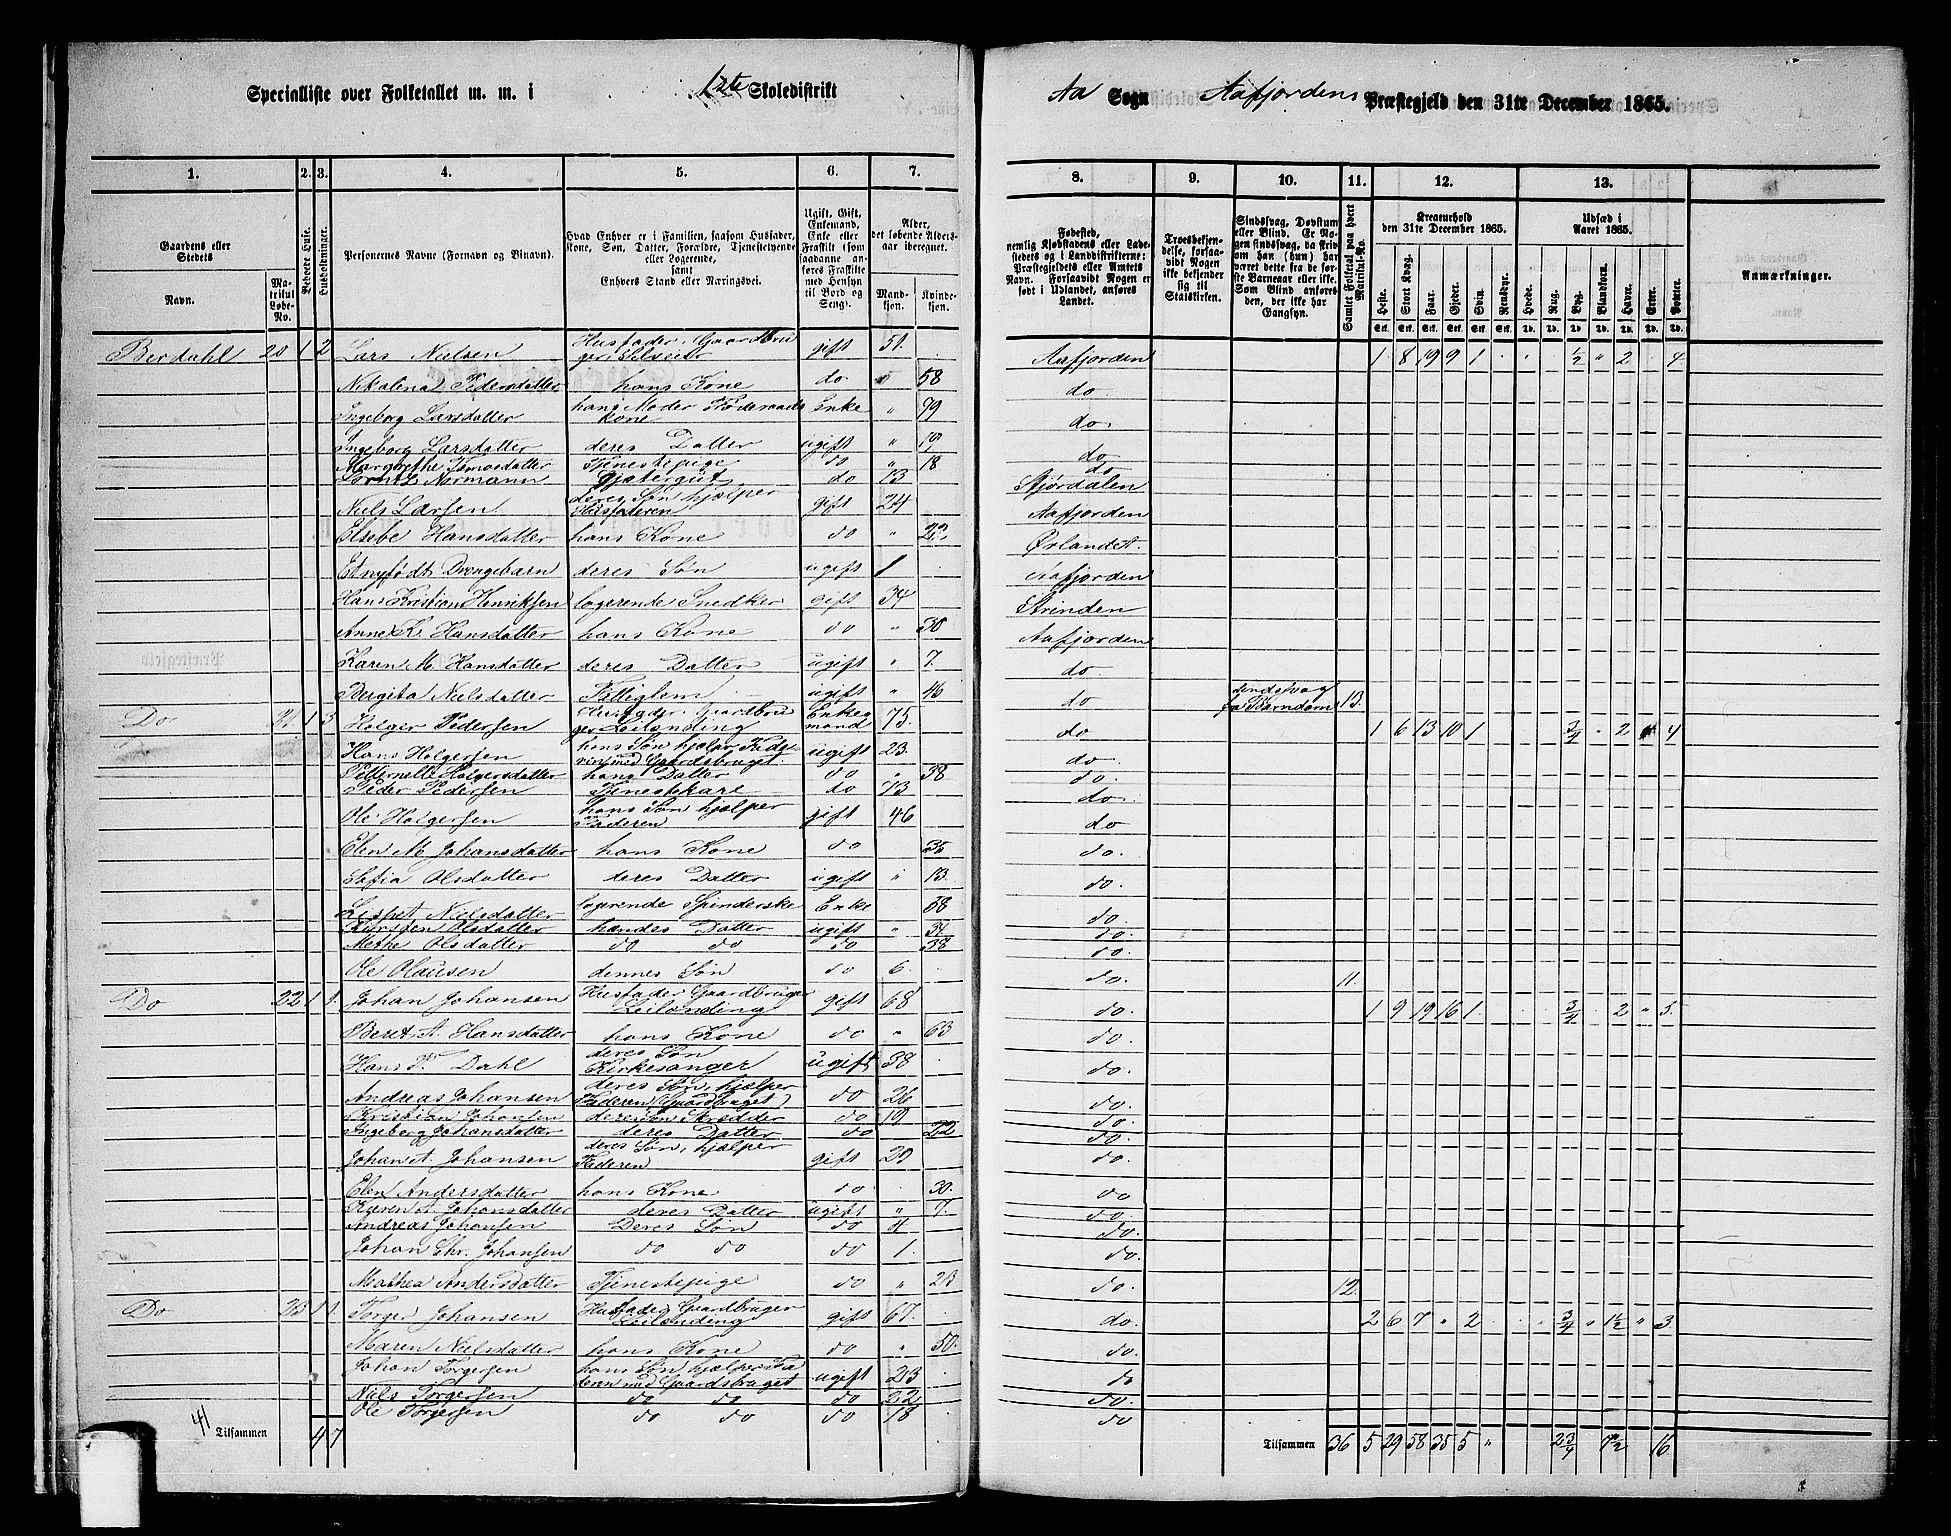 Specialliste over Folketallet m. m. i 1ste Skoledistrikt
Aa Sogn Aafjordens Præstegjeld den 31te December 1865.
1. 2. 3. 4. 5. 6. 7. 8. 9. 10. 11. 12. 13.
Gaardens eller Stedets
Navn.
Matrikul Løbe-No.
Bebøede Huse.
Husholdninger.
Personernes Navne (Fornavn og Binavn).
Hvad Enhver er i Familien, saasom Husfader, Kone, Søn, Datter, Forældre, Tjenestetyende eller Logerende, samt Enhvers Stand eller Næringsvei.
Ugift, Gift, Enkemand, Enke eller Fraskilt (som saadanne anføres Fraskilte med Hensyn til Bord og Seng).
Alder, det løbende Aldersaar iberegnet.
Mandkjøn. Kvindekjøn.
Fødested, nemlig Kjøbstadens eller Ladestedets og i Landdistrikterne: Præstegjeldets eller Amtets Navn. Forsaavidt Nogen er født i Udlandet, anføres Landet.
Troesbekjendelse, forsaavidt Nogen ikke bekjender sig til Statskirken.
Sindssvag, Døvstum eller Blind. Er Nogen sindssvag, da skrives om han (hun) har været dette fra de første Barneaar eller ikke. Som Blind anføres den, der ikke har Gangsyn.
Samlet Folketal paa hvert Matrikul-No.
Kreaturhold den 31te December 1865.
Heste. Stort Kvæg. Faar. Gjeder. Svin. Rensdyr.
Udsæd i Aaret 1865.
Hvede. Rug. Byg. Blandkorn. Havre. Erter. Poteter.
Anmærkninger.
Berdahl 20 1 2 Lars Nielsen Husfader, Gaardbruger Selveier gift 51. Aafjorden 1 8 19 9 1 ½ " 2 4
Nikolena Pedersdatter hans Kone do 58 do
Ingeborg Larsdatter hans Moder Føderaads kone Enke " 79 do
Ingeborg Larsdatter deres Datter ugift " 19 do
Margrethe Tomasdatter Tjenestepige do " 18 do
Normann Gjætergut do 13 Stjørdalen
Niels Larsen deres Søn hjælper Husfaderen gift 24 Aafjorden
Elsebe Hansdatter hans Kone do " 22 Ørlandet.
Et nyfødt Drengebarn deres Søn ugift 1 Aafjorden
Hans Kristian Henriksen logerende Snedker gift 34 Strinden
Anne K. Hansdatter hans Kone do " 30 Aafjorden
Karen M. Hansdatter deres Datter ugift " 7. do
Bergita Nielsdatter Fattiglem ugift " 46 do sindssvag fra Barndom 13.
Do 21 1 3 Holger Pedersen Husfader, Gaardbruger Leilending Enkemand 75. do 1 6 13 10 1 ¾ 2 4
Hans Holgersen hans Søn hjælper Faderen med Gaardsbruget. ugift 23. do
Pitternelle Holgersdatter hans Datter do " 38 do.
Peder Pedersen Tjenestekarl do 73 do.
Ole Holgersen hans Søn hjælper Faderen gift 46 do
Elen M. Johansdatter hans Kone do 35 do.
Sofia Olsdatter deres Datter ugift " 13. do.
Lispet Nielsdatter logerende Spinderske Enke 58 do.
Kirsten Olsdatter hendes Datter ugift " 34. do.
Methe Olsdatter do do do 38 do.
Ole Olausen dennes Søn do 6. do. 11.
Do 22 1 1. Johan Johansen Husfader Gaardbruger Leilending gift 68 do. 1 9 19 16 1. ¾ 2 " 5.
Beret A. Hansdatter hans Kone do " 63 do.
Hans P. Dahl deres Søn Kirkesanger ugift 38 do.
Andreas Johansen deres Søn, hjælper Faderen (Gaardbruget) do 26 do.
Kristian Johansen deres Søn Skrædder do 19 do.
Ingeborg Johansdatter deres Datter do 22 do.
Johan A. Johansen deres Søn, hjælper Faderen gift 29 do.
Elen Andersdatter hans Kone do 30. do
Karen A. Johansdatter deres Datter ugift " 7. do.
Andreas Johansen Deres Søn do 4 do.
Johan Chr. Johansen do do do 1. do.
Mathea Andersdatter Tjenestepige do " 23 do. 12.
Do 23 1 1. Torger Johansen Husfader Gaardbruger Leilending gift 67. do. 2 6 7 " 2 ¾ " 1½ " 3
Maren Nielsdatter hans Kone do " 50. do.
Johan Torgersen hans Søn hjælper Faderen med Gaardsbruget ugift 23 do
Niels Torgersen do do do 22 do.
Ole Torgersen do do do 18 do
41 Tilsammen 4 7
Tilsammen 36 5 29 58 35 5 " 2¾ 7½ 16